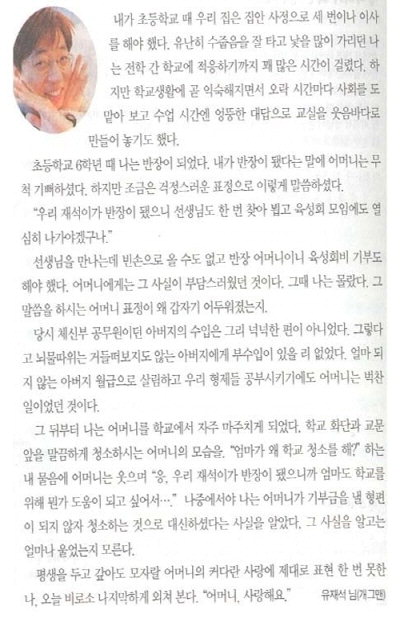 내가 초등학교 때 우리 집은 집안 사정으로 세 번이나 이사
를 해야 했다. 유난히 수줍음을 잘 타고 낯을 많이 가리던 나
는 전학 간 학교에 적응하기까지 꽤 많은 시간이 걸렸다. 하
지만 학교생활에 곧 익숙해지면서 오락 시간마다 사회를 도
맡아 보고 수업 시간엔 엉뚱한 대답으로 교실을 웃음바다로
만들어 놓기도 했다.
초등학교 6학년 때 나는 반장이 되었다. 내가 반장이 됐다는 말에 어머니는 무
척 기뻐하셨다. 하지만 조금은 걱정스러운 표정으로 이렇게 말씀하셨다.
“우리 재석이가 반장이 됐으니 선생님도 한 번 찾아 뵙고 육성회 모임에도 열
심히 나가야겠구나.”
선생님을 만나는데 빈손으로 올 수도 없고 반장 어머니이니 육성회비 기부도
해야 했다. 어머니에게는 그 사실이 부담스러웠던 것이다. 그때 나는 몰랐다. 그
말씀을 하시는 어머니 표정이 왜 갑자기 어두워졌는지.
당시 체신부 공무원이던 아버지의 수입은 그리 넉넉한 편이 아니었다. 그렇다
고 뇌물따위는 거들떠보지도 않는 아버지에게 부수입이 있을 리 없었다. 얼마 되
지 않는 아버지 월급으로 살림하고 우리 형제들 공부시키기에도 어머니는 벅찬
일이었던 것이다.
그 뒤부터 나는 어머니를 학교에서 자주 마주치게 되었다, 학교 화단과 교문
앞을 말끔하게 청소하시는 어머니의 모습을. “엄마가 왜 학교 청소를 해?” 하는
내 물음에 어머니는 웃으며 “응, 우리 재석이가 반장이 됐으니까 엄마도 학교를
위해 뭔가 도움이 되고 싶어서…” 나중에서야 나는 어머니가 기부금을 낼 형편
이 되지 않자 청소하는 것으로 대신하셨다는 사실을 알았다, 그 사실을 알고는
얼마나 울었는지 모른다.
평생을 두고 갚아도 모자랄 어머니의 커다란 사랑에 제대로 표현 한 번 못한
나, 오늘 비로소 나지막하게 외쳐 본다. “어머니, 사랑해요.” 유재석 님(개그맨)